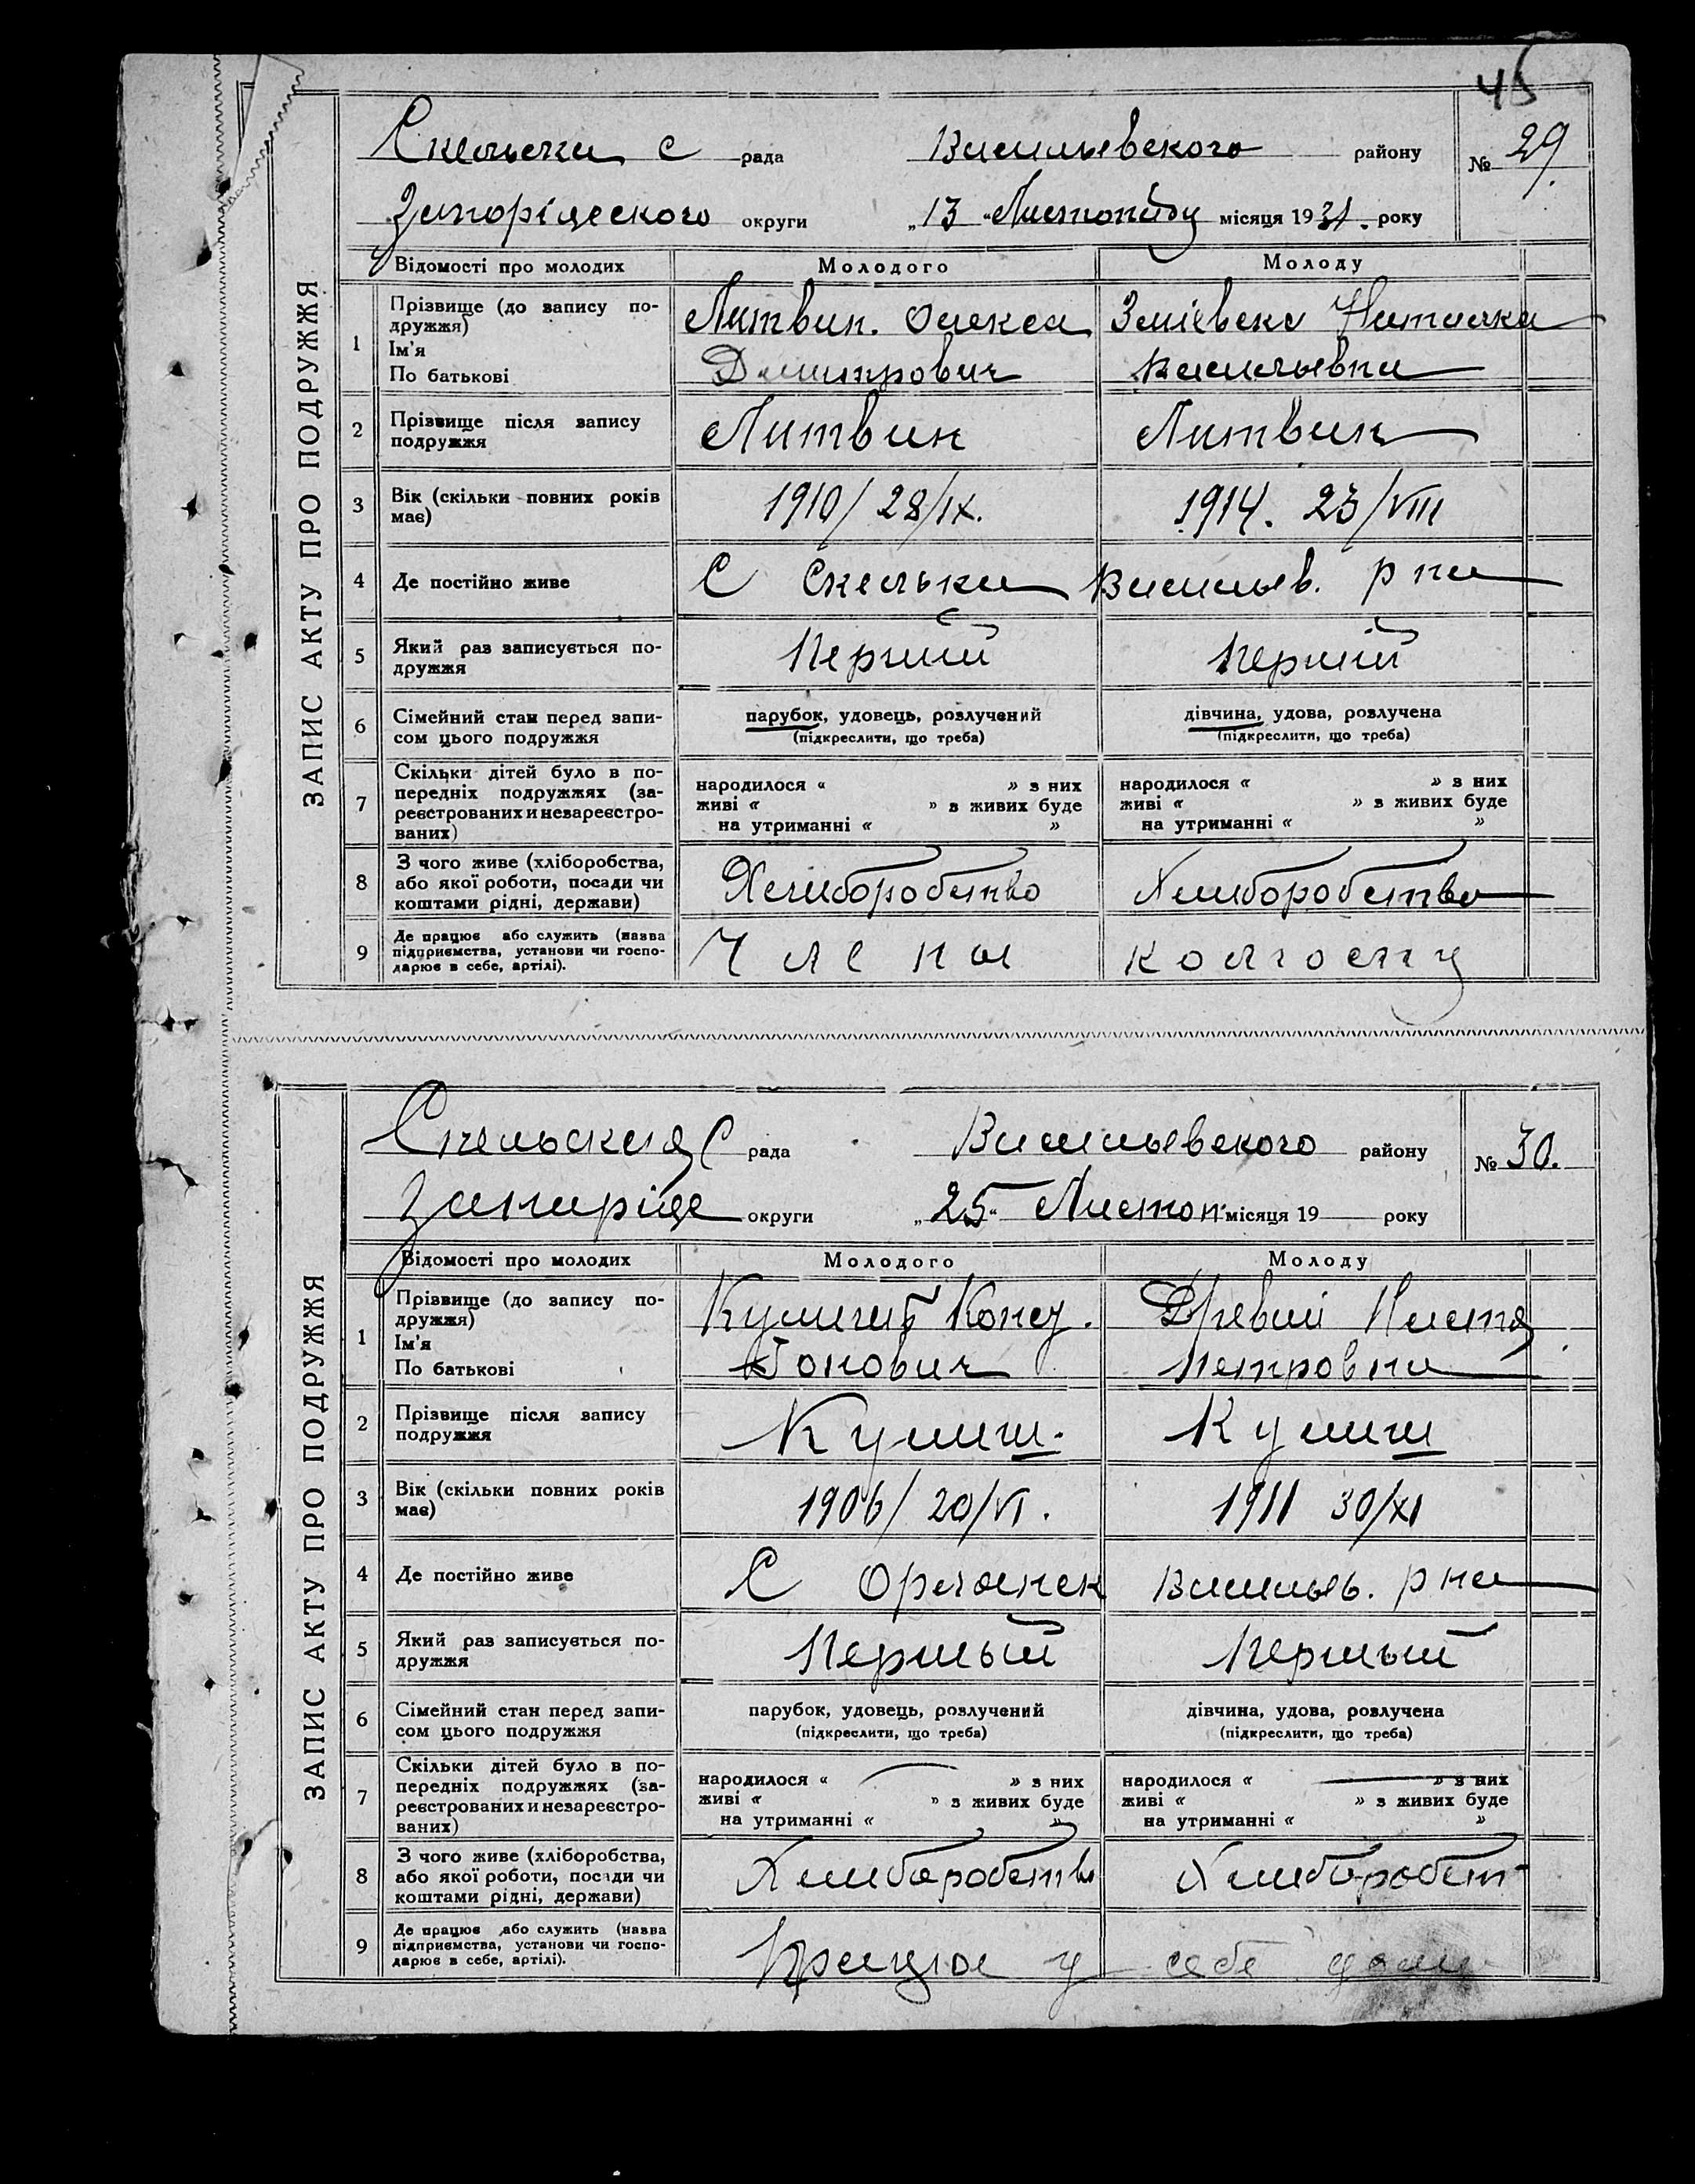 45
Скельска с рада Васильевского району № 29.
Запоріжеского округи „13“ Листопаду місяця 1931. року
ЗАПИС АКТУ ПРО ПОДРУЖЖЯ
Відомості про молодих Молодого Молоду
1 Прізвище (до запису по-
дружжя)
Ім'я
По батькові
Литвин. Олекса
Дмитрович
Зміевска Наталка
Васильевна
2 Прізвище після запису
подружжя
Литвин Литвин
3 Вік (скільки повних років
має)
1910/28/IX. 1914. 23/VIII
4 Де постійно живе С Скельки Васильев. р на
5 Який раз записується по-
дружжя
Перший Перший
6 Сімейний стан перед запи-
сом цього подружжя
парубок, удовець, розлучений
(підкреслити, що треба)
дівчина, удова, розлучена
(підкреслити, що треба)
7 Скільки дітей було в по-
передніх подружжях (за-
реєстрованих и незареєстро-
ваних)
народилося « » з них
живі « » з живих буде
на утриманні « »
народилося « » з них
живі « » з живих буде
на утриманні « »
8 З чого живе (хліборобства,
або якої роботи, посади чи
коштами рідні, держави)
Хлиборобство Хлиборобство
9 Де працює або служить (назва
підприємства, установи чи госпо-
дарює в себе, артілі).
Члены колгоспу
Скельская С рада Васильевского району № 30.
Запоріже округи „25“ Листоп місяця 19 року
ЗАПИС АКТУ ПРО ПОДРУЖЖЯ
Відомості про молодих Молодого Молоду
1 Прізвище (до запису по-
дружжя)
Ім'я
По батькові
Древий Настя
Петровна
2 Прізвище після запису
подружжя
Кулиш. Кулиш
3 Вік (скільки повних років
має)
1906/20/VI. 1911 30/XI
4 Де постійно живе С Орлянск Васильев. р на
5 Який раз записується по-
дружжя
Першый Першый
6 Сімейний стан перед запи-
сом цього подружжя
парубок, удовець, розлучений
(підкреслити, що треба)
дівчина, удова, розлучена
(підкреслити, що треба)
7 Скільки дітей було в по-
передніх подружжях (за-
реєстрованих и незареєстро-
ваних)
народилося « » з них
живі « » з живих буде
на утриманні « »
народилося « » з них
живі « » з живих буде
на утриманні « »
8 З чого живе (хліборобства,
або якої роботи, посади чи
коштами рідні, держави)
Хлиборобство Хлиборобст
9 Де працює або служить (назва
підприємства, установи чи госпо-
дарює в себе, артілі).
Працюе у себе дома